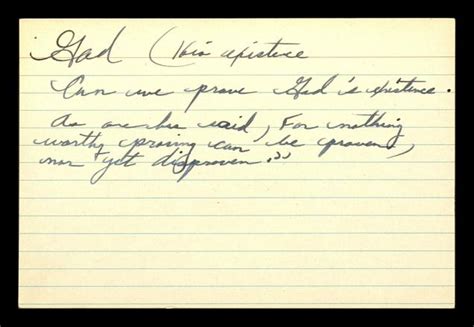 God (his existence
Can we prove God's existence.
As one has said, For nothing
worthy proving can be proven,
nor yet disproven."